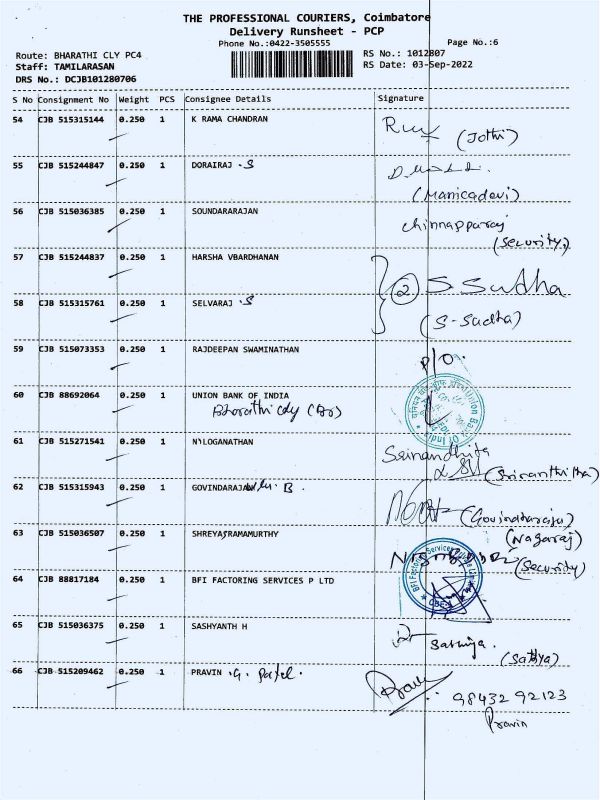 THE PROFESSIONAL COURIERS, Coimbatore
Delivery Runsheet - PCP
Phone No.:0422-3505555 Page No.:6
Route: BHARATHI CLY PC4 RS No.: 1012807
Staff: TAMILARASAN RS Date: 03-Sep-2022
DRS No.: DCJB101280706
S No Consignment No Weight PCS Consignee Details Signature
54 CJB 515315144 0.250 1 K RAMA CHANDRAN
(Jothi)
55 CJB 515244847 0.250 1 DORAIRAJ .S
(Manicadevi)
56 CJB 515036385 0.250 1 SOUNDARARAJAN chinnapparaj
(Security)
57 CJB 515244837 0.250 1 HARSHA VBARDHANAN 2 S Sudha
58 CJB 515315761 0.250 1 SELVARAJ .S (S-Sudha)
59 CJB 515073353 0.250 1 RAJDEEPAN SWAMINATHAN P/O.
60 CJB 88692064 0.250 1 UNION BANK OF INDIA
Bharathi cly (Br)
Union Bank Of India
61 CJB 515271541 0.250 1 N\LOGANATHAN Srinandhita
(Srinanthitha)
62 CJB 515315943 0.250 1 GOVINDARAJAN B. (Govindharaju)
63 CJB 515036507 0.250 1 SHREYASRAMAMURTHY (Nagaraj)
(Security)
64 CJB 88817184 0.250 1 BFI FACTORING SERVICES P LTD
BFI Factoring Services
CBE-1
65 CJB 515036375 0.250 1 SASHYANTH H Sathya.
(Sathya)
66 CJB 515209462 0.250 1 PRAVIN .G. Patel. 98432 92123
Pravin